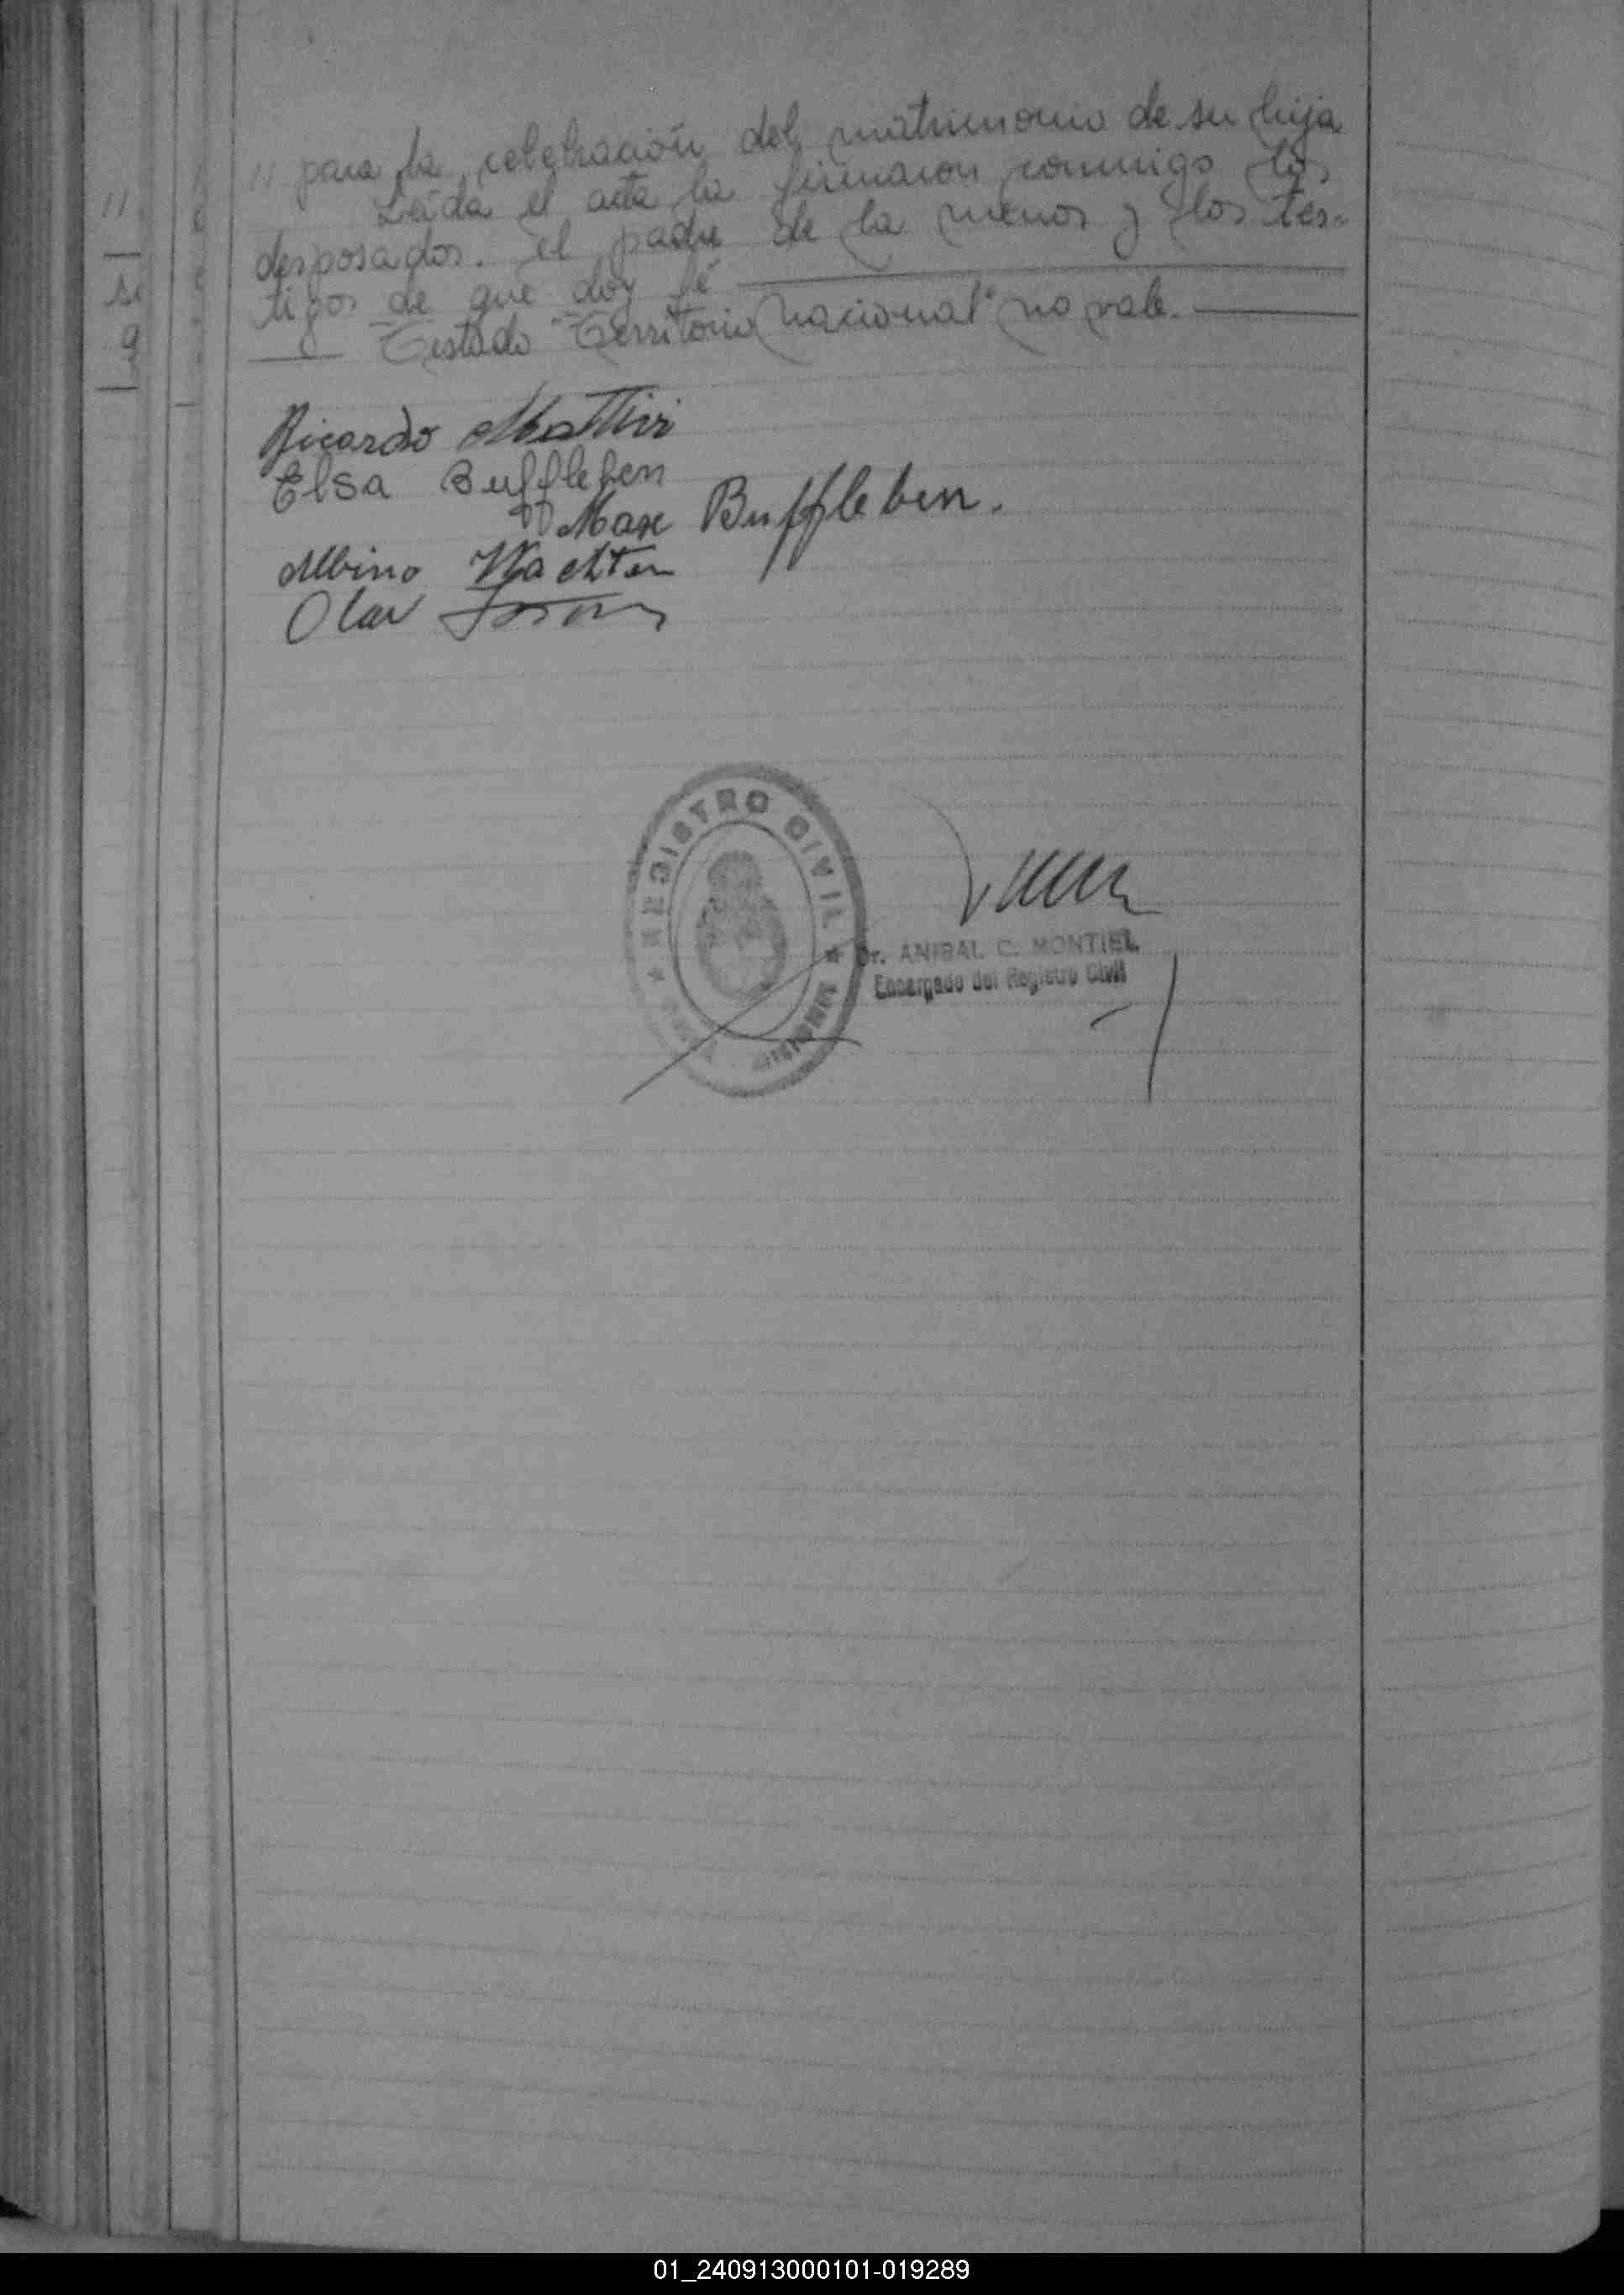 " para la celebración del matrimonio de su hija
Leída el acta la firmaron conmigo los
desposados. el padre de la menor y los tes-
tigos de que doy fé
Testado "Territorio nacional" no vale.
Ricardo Mattivi
Elsa Buffleben
Max Buffleben.
Albino Wachter
Olav
REGISTRO CIVIL
Dr. ANIBAL C. MONTIEL
Encargado del Registro Civil
01_240913000101-019289